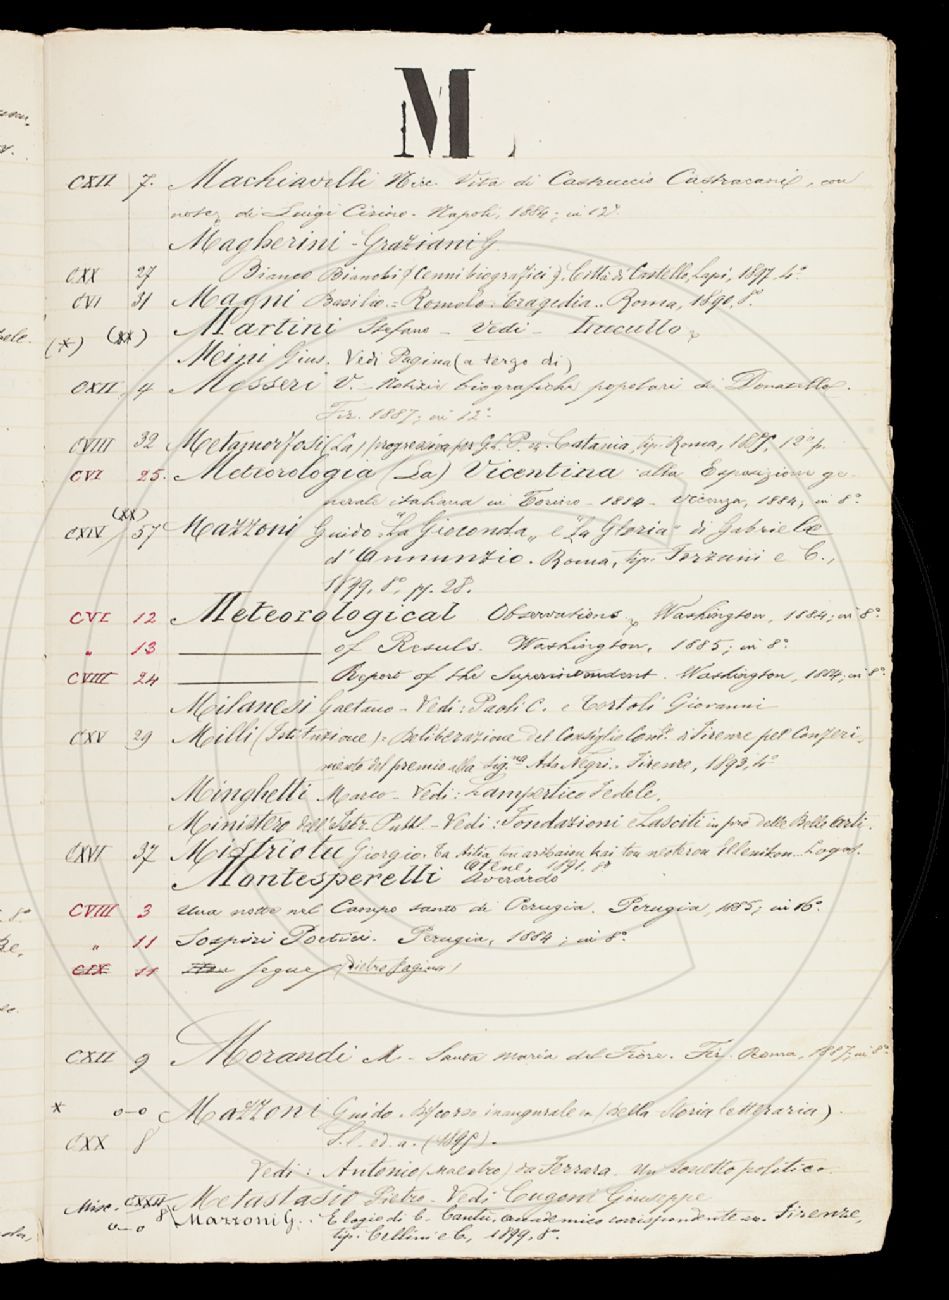 M
CXII 7. Machiavelli Nic. Vita di Castruccio Castracani, con
note di Luigi Cirino. Napoli, 1884; in 12°
Magherini-Graziani G.
CXX 27 Bianco Bianchi (Cenni biografici). Città di Castello, Lapi, 1897, 4°
CVI 31 Magni Basilio. = Romolo. Tragedia. Roma, 1890, 8°
(xx) Martini Stefano - Vedi - Trucullo
(*) Meini Gius. Vedi Pagina (a tergo di)
CXII 4 Messeri V. - Notizie biografiche popolari di Donatello.
Fir. 1887; in 12°.
CVIII 32 Metamorfosi (La) progressiva per G. P. Catania, tip. Roma, 12° p.
CVI 25. Meteorologia (La) Vicentina alla Esposizione ge-
nerale italiana in Torino - 1884 - Vicenza, 1884; in 8°
(xx)
CXIV 57 Mazzoni Guido "La Gioconda" e "La Gloria" di Gabriele
d'Annunzio. Roma, tip. Forzani e C.,
1899, 8°, pp. 28.
CVI 12 Meteorological Observations, Washington, 1884; in 8°
" 13 ——— of Resuls. Washington, 1885; in 8°
CVIII 24 ——— Report of the Superintendent. Washington, 1884; in 8°.
Milanesi Gaetano - Vedi: Paoli C. e Tortoli Giovanni
CXV 29 Milli (Istituzione) = Deliberazione del Consiglio Com. di Firenze pel Conferi-
mento del premio alla Sig.na Ada Negri. Firenze, 1893, 4°
Minghetti Marco - Vedi: Lampertico Fedele.
Ministero dell'Istr. Pubbl. - Vedi: Fondazioni e Lasciti in pro delle Belle Arti.
CXVI 37 Giorgio. Ta Aitia tou archaiou kai tou neoterou Ellenikon
Atene, 1891, 8°
Montesperelli Averardo
CVIII 3 Una notte nel Campo santo di Perugia. Perugia, 1885; in 16°.
" 11 Sospiri Poetici. Perugia, 1884; in 8°.
CIX 11 segue (dietro pagina)
CXII 9 Morandi A. - Santa Maria del Fiore. Fir. Roma, 1887; in 8°
* o-o Mazzoni Guido. Discorso inaugurale (Della Storia letteraria).
CXX 8 S. l. ed a.
Vedi: Antonio (Maestro) da Ferrara. Un sonetto politico.
Misc. CXXII 8 Metastasio Pietro - Vedi Cugnoni Giuseppe
o-o Mazzoni G. Elogio di C. Cantù, accademico corrispondente Firenze,
tip. Cellini e C., 1899, 8°.